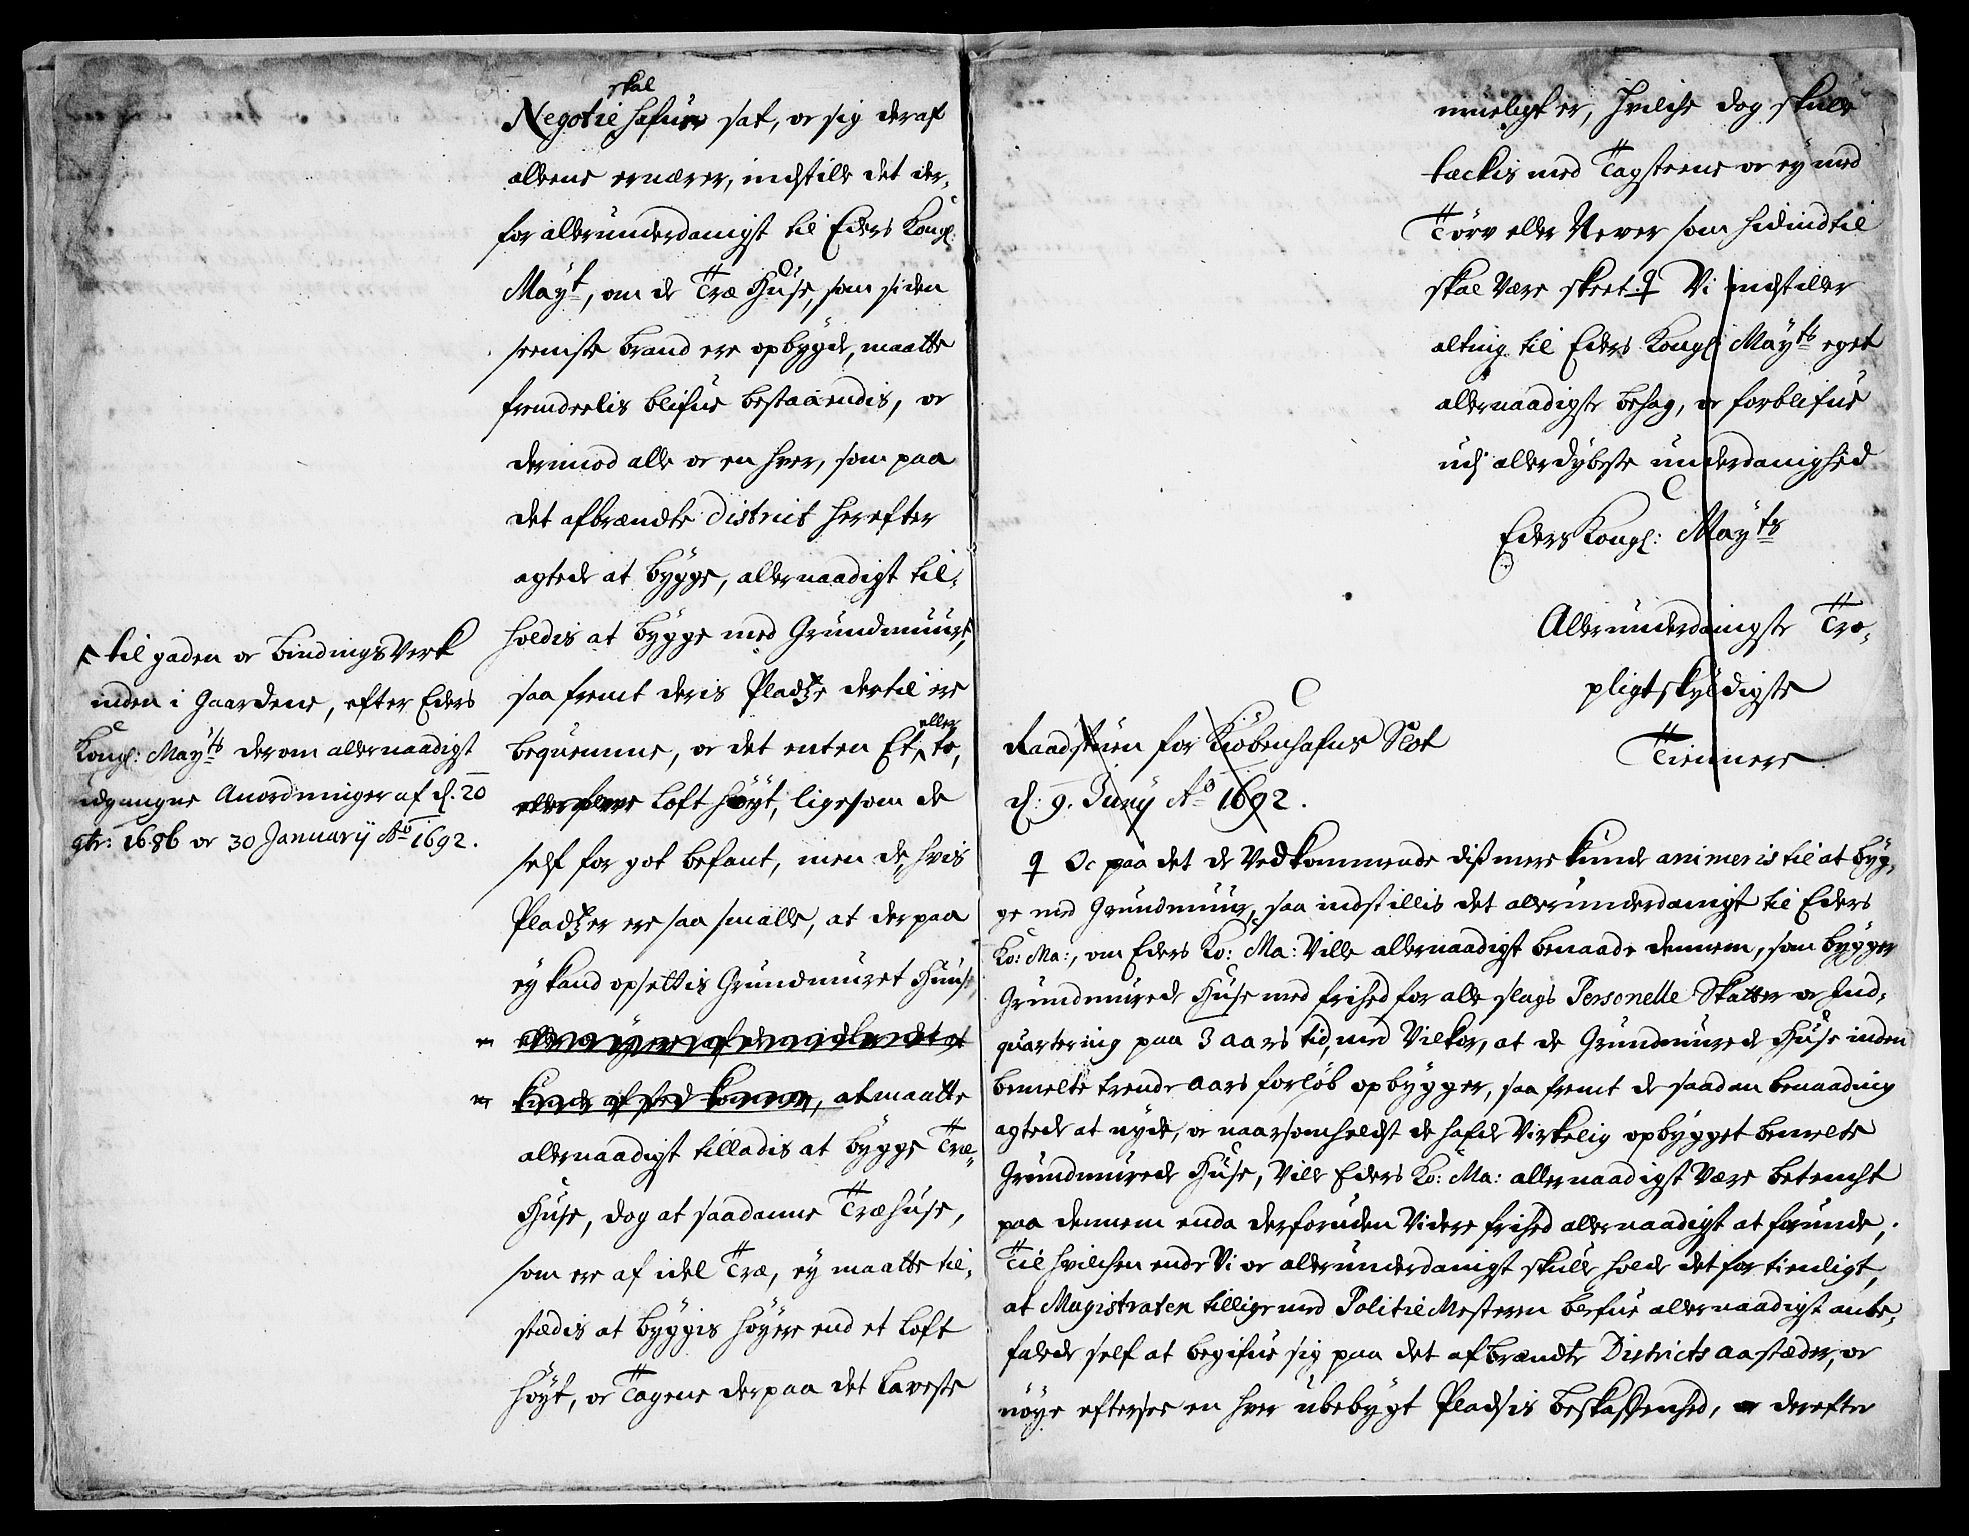 skal
Negotie hafuer sat, oc sig deraf
alleene ernærer, indstille det der,
for allerunderdanigst til Eders Kongl:
Mayt, om de Træ Huse, som siden
seeniste brand ere opbygde, maatte
fremdeelis blifue bestaaendis, oc
derimod alle oc en hver, som paa
det afbrændte District herefter
agtede at bygge, allernaadigst til,
holdis at bygge med Grundmuure,
saa fremt deris Pladtze dertil ere
beqvemme, oc det enten Et, eller to,
eller flere Loft høyt, ligesom de
self for got befant, men de, hvis
Pladtzer ere saa smalle, at derpaa
ey kand opsettis Grundmuret Huuse,
kunde afsted komme, at maatte
allernaadigst tilladis at bygge Træ,
Huse, dog at saadanne Træhuse,
som ere af idel Træ, ey maatte til,
stædis at byggis høyere end et Loft
høyt, oc Tagene derpaa det Laveste
til gaden oc Bindings Verk
inden i Gaardene, efter Eders
Kongl: Mayts derom allernaadigst
udgangne Anordninger af d. 20
9br: 1686 oc 30 Januarij Ao 1692.
mueligt er, hvilche dog skulle
tæckis med Tagsteene oc ey med
Törv eller Never som hidindtil
skal være skeet. Vi indstiller
alting til Eders Kongl Mayts eget
allernaadigste behag, oc forblifue
udj allerdybeste underdanighed
Eders Kongl: Mayts
Allerunderdanigste Tro,
pligtskyldigste
Tiennere
Raadstuen for Kiøbenhafns Slot
d: 9. Junij Ao 1692.
Oc paa det de Vedkommende dissmere kunde animeris til at byg,
ge med Grundmuur, saa indstillis det allerunderdanigst til Eders
Ko: Ma:, om Eders Ko: Ma: Ville allernaadigst benaade dennem, som bygger
Grundmurede Huse med frihed for alle slags Personelle Skatter oc Ind,
quartering paa 3 aars tid, med Vilkor, at de Grundmurede Huse inden
bemelte trende aars forløb opbygger, saa fremt de saadan benaading
agtede at nyde, oc naarsomhelst de hafde Virkelig opbygget bemelte
Grundmurede Huse, Ville Eders Ko: Ma: allernaadigst Være betencht
paa dennem enda derforuden Videre frihed allernaadigst at forunde,
Til hvilchen ende Vi oc allerunderdanigst skulle holde det for tienligt,
at Magistraten tillige med Politie Mesteren blefue allernaadigst anbe,
falede self at begifue sig paa det afbrændte Districts aastæder, oc
nøye efftersee en hver ubebygt Pladsis beskaffenhed, oc derefter